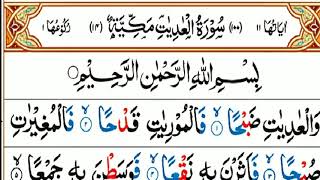 اٰيَاتُهَا ١١ (١٠٠) سُوْرَةُ الْعٰدِيٰتِ مَكِّيَّةٌ (١٤) رُكُوْعُهَا ١
بِسْمِ اللهِ الرَّحْمٰنِ الرَّحِيْمِ
وَالْعٰدِيٰتِ ضَبْحًا ١ فَالْمُوْرِيٰتِ قَدْحًا ٢ فَالْمُغِيْرٰتِ
صُبْحًا ٣ فَاَثَرْنَ بِهٖ نَقْعًا ٤ فَوَسَطْنَ بِهٖ جَمْعًا ٥